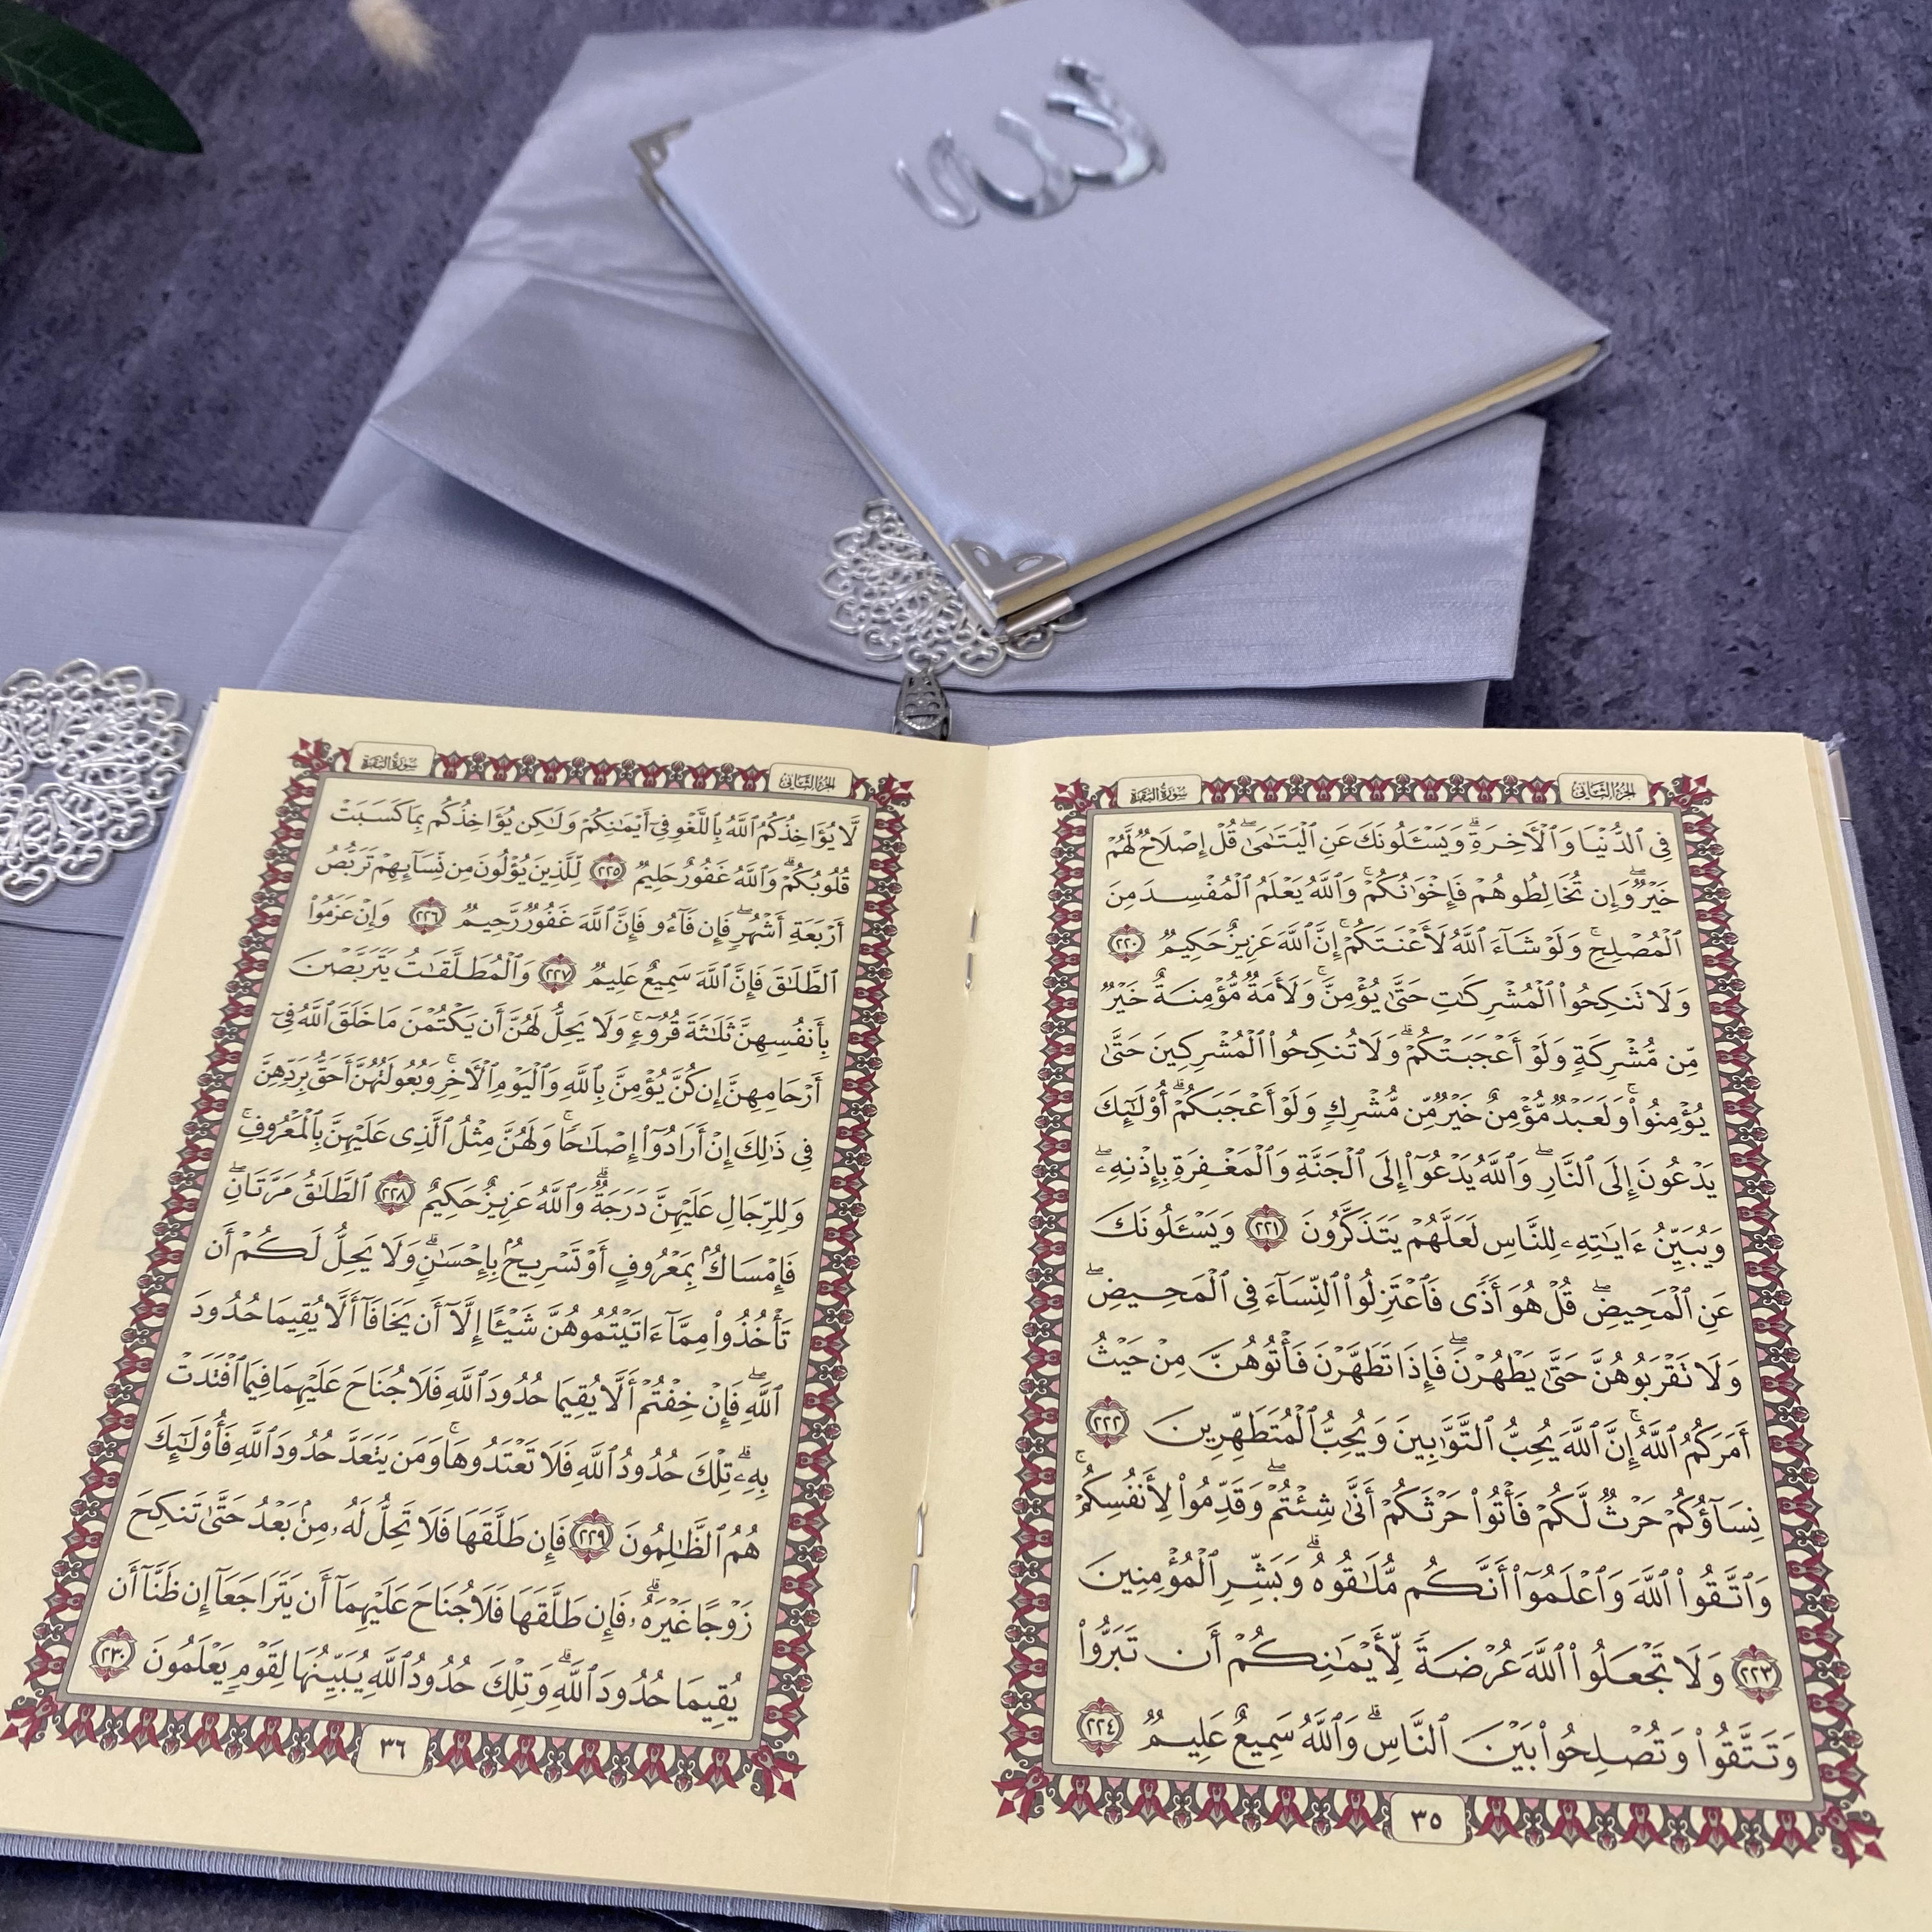 الله
الجزء الثاني
سورة البقرة
فِي ٱلدُّنْيَا وَٱلْأَخِرَةِۗ وَيَسْـَٔلُونَكَ عَنِ ٱلْيَتَٰمَىٰۖ قُلْ إِصْلَاحٌ لَّهُمْ
خَيْرٌۖ وَإِن تُخَالِطُوهُمْ فَإِخْوَٰنُكُمْۚ وَٱللَّهُ يَعْلَمُ ٱلْمُفْسِدَ مِنَ
ٱلْمُصْلِحِۚ وَلَوْ شَآءَ ٱللَّهُ لَأَعْنَتَكُمْۚ إِنَّ ٱللَّهَ عَزِيزٌ حَكِيمٌ ٢٢٠
وَلَا تَنكِحُوا۟ ٱلْمُشْرِكَٰتِ حَتَّىٰ يُؤْمِنَّۚ وَلَأَمَةٌ مُّؤْمِنَةٌ خَيْرٌ
مِّن مُّشْرِكَةٍ وَلَوْ أَعْجَبَتْكُمْۗ وَلَا تُنكِحُوا۟ ٱلْمُشْرِكِينَ حَتَّىٰ
يُؤْمِنُوا۟ۚ وَلَعَبْدٌ مُّؤْمِنٌ خَيْرٌ مِّن مُّشْرِكٍ وَلَوْ أَعْجَبَكُمْۗ أُو۟لَٰٓئِكَ
يَدْعُونَ إِلَى ٱلنَّارِۖ وَٱللَّهُ يَدْعُوٓا۟ إِلَى ٱلْجَنَّةِ وَٱلْمَغْفِرَةِ بِإِذْنِهِۦۖ
وَيُبَيِّنُ ءَايَٰتِهِۦ لِلنَّاسِ لَعَلَّهُمْ يَتَذَكَّرُونَ ٢٢١ وَيَسْـَٔلُونَكَ
عَنِ ٱلْمَحِيضِۖ قُلْ هُوَ أَذًى فَٱعْتَزِلُوا۟ ٱلنِّسَآءَ فِي ٱلْمَحِيضِۖ
وَلَا تَقْرَبُوهُنَّ حَتَّىٰ يَطْهُرْنَۖ فَإِذَا تَطَهَّرْنَ فَأْتُوهُنَّ مِنْ حَيْثُ
أَمَرَكُمُ ٱللَّهُۚ إِنَّ ٱللَّهَ يُحِبُّ ٱلتَّوَّٰبِينَ وَيُحِبُّ ٱلْمُتَطَهِّرِينَ ٢٢٢
نِسَآؤُكُمْ حَرْثٌ لَّكُمْ فَأْتُوا۟ حَرْثَكُمْ أَنَّىٰ شِئْتُمْۖ وَقَدِّمُوا۟ لِأَنفُسِكُمْۚ
وَٱتَّقُوا۟ ٱللَّهَ وَٱعْلَمُوٓا۟ أَنَّكُم مُّلَٰقُوهُۗ وَبَشِّرِ ٱلْمُؤْمِنِينَ
٢٢٣ وَلَا تَجْعَلُوا۟ ٱللَّهَ عُرْضَةً لِّأَيْمَٰنِكُمْ أَن تَبَرُّوا۟
وَتَتَّقُوا۟ وَتُصْلِحُوا۟ بَيْنَ ٱلنَّاسِۗ وَٱللَّهُ سَمِيعٌ عَلِيمٌ ٢٢٤
٣٥
الجزء الثاني
سورة البقرة
لَّا يُؤَاخِذُكُمُ ٱللَّهُ بِٱللَّغْوِ فِيٓ أَيْمَٰنِكُمْ وَلَٰكِن يُؤَاخِذُكُم بِمَا كَسَبَتْ
قُلُوبُكُمْۗ وَٱللَّهُ غَفُورٌ حَلِيمٌ ٢٢٥ لِّلَّذِينَ يُؤْلُونَ مِن نِّسَآئِهِمْ تَرَبُّصُ
أَرْبَعَةِ أَشْهُرٍۖ فَإِن فَآءُو فَإِنَّ ٱللَّهَ غَفُورٌ رَّحِيمٌ ٢٢٦ وَإِنْ عَزَمُوا۟
ٱلطَّلَٰقَ فَإِنَّ ٱللَّهَ سَمِيعٌ عَلِيمٌ ٢٢٧ وَٱلْمُطَلَّقَٰتُ يَتَرَبَّصْنَ
بِأَنفُسِهِنَّ ثَلَٰثَةَ قُرُوٓءٍۚ وَلَا يَحِلُّ لَهُنَّ أَن يَكْتُمْنَ مَا خَلَقَ ٱللَّهُ فِيٓ
أَرْحَامِهِنَّ إِن كُنَّ يُؤْمِنَّ بِٱللَّهِ وَٱلْيَوْمِ ٱلْأَخِرِۚ وَبُعُولَتُهُنَّ أَحَقُّ بِرَدِّهِنَّ
فِي ذَٰلِكَ إِنْ أَرَادُوٓا۟ إِصْلَٰحًاۚ وَلَهُنَّ مِثْلُ ٱلَّذِى عَلَيْهِنَّ بِٱلْمَعْرُوفِۚ
وَلِلرِّجَالِ عَلَيْهِنَّ دَرَجَةٌۗ وَٱللَّهُ عَزِيزٌ حَكِيمٌ ٢٢٨ ٱلطَّلَٰقُ مَرَّتَانِۖ
فَإِمْسَاكٌۢ بِمَعْرُوفٍ أَوْ تَسْرِيحٌۢ بِإِحْسَٰنٍۗ وَلَا يَحِلُّ لَكُمْ أَن
تَأْخُذُوا۟ مِمَّآ ءَاتَيْتُمُوهُنَّ شَيْـًٔا إِلَّآ أَن يَخَافَآ أَلَّا يُقِيمَا حُدُودَ
ٱللَّهِۖ فَإِنْ خِفْتُمْ أَلَّا يُقِيمَا حُدُودَ ٱللَّهِ فَلَا جُنَاحَ عَلَيْهِمَا فِيمَا ٱفْتَدَتْ
بِهِۦۗ تِلْكَ حُدُودُ ٱللَّهِ فَلَا تَعْتَدُوهَاۚ وَمَن يَتَعَدَّ حُدُودَ ٱللَّهِ فَأُو۟لَٰٓئِكَ
هُمُ ٱلظَّٰلِمُونَ ٢٢٩ فَإِن طَلَّقَهَا فَلَا تَحِلُّ لَهُۥ مِنۢ بَعْدُ حَتَّىٰ تَنكِحَ
زَوْجًا غَيْرَهُۥۗ فَإِن طَلَّقَهَا فَلَا جُنَاحَ عَلَيْهِمَآ أَن يَتَرَاجَعَآ إِن ظَنَّآ أَن
يُقِيمَا حُدُودَ ٱللَّهِۗ وَتِلْكَ حُدُودُ ٱللَّهِ يُبَيِّنُهَا لِقَوْمٍ يَعْلَمُونَ ٢٣٠
٣٦